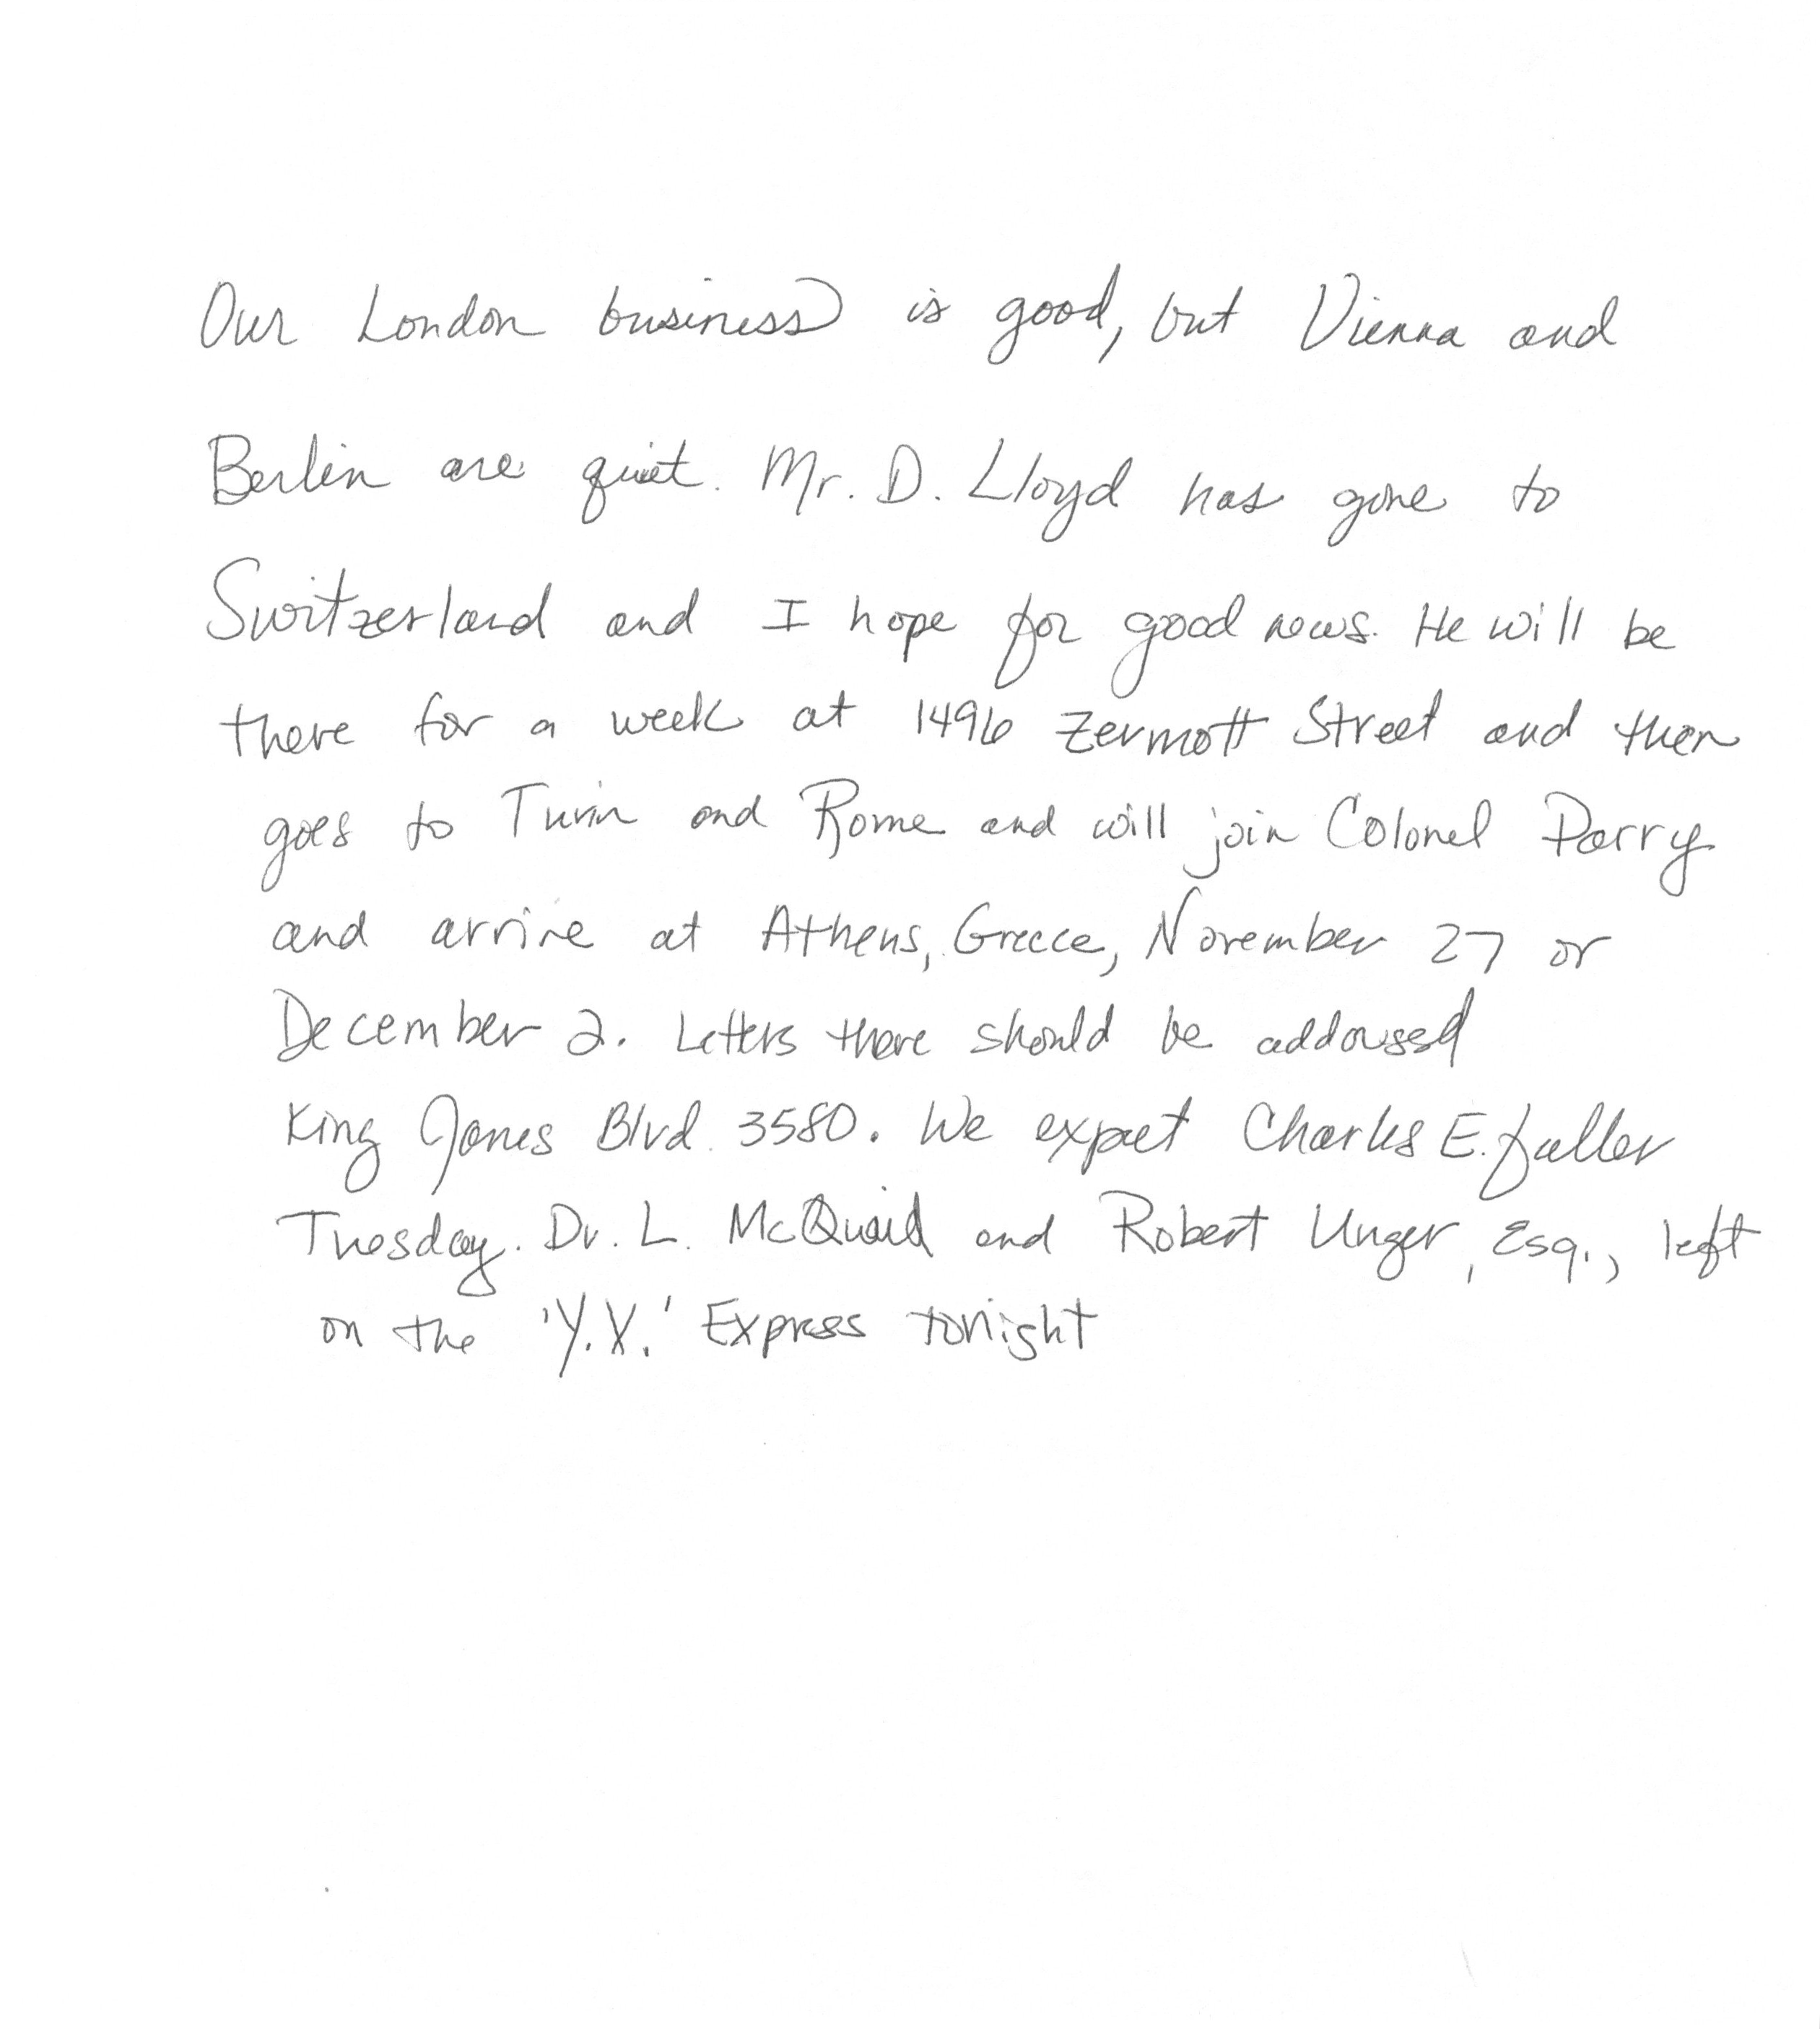 Our London business is good, but Vienna and
Berlin are quiet. Mr. D. Lloyd has gone to
Switzerland and I hope for good news. He will be
there for a week at 1496 Zermott Street and then
goes to Turin and Rome and will join Colonel Parry
and arrive at Athens, Greece, November 27 or
December 2. Letters there should be addressed
King James Blvd. 3580. We expect Charles E. Fuller
Tuesday. Dr. L. McQuaid and Robert Unger, Esq., left
on the 'Y.X.' Express tonight